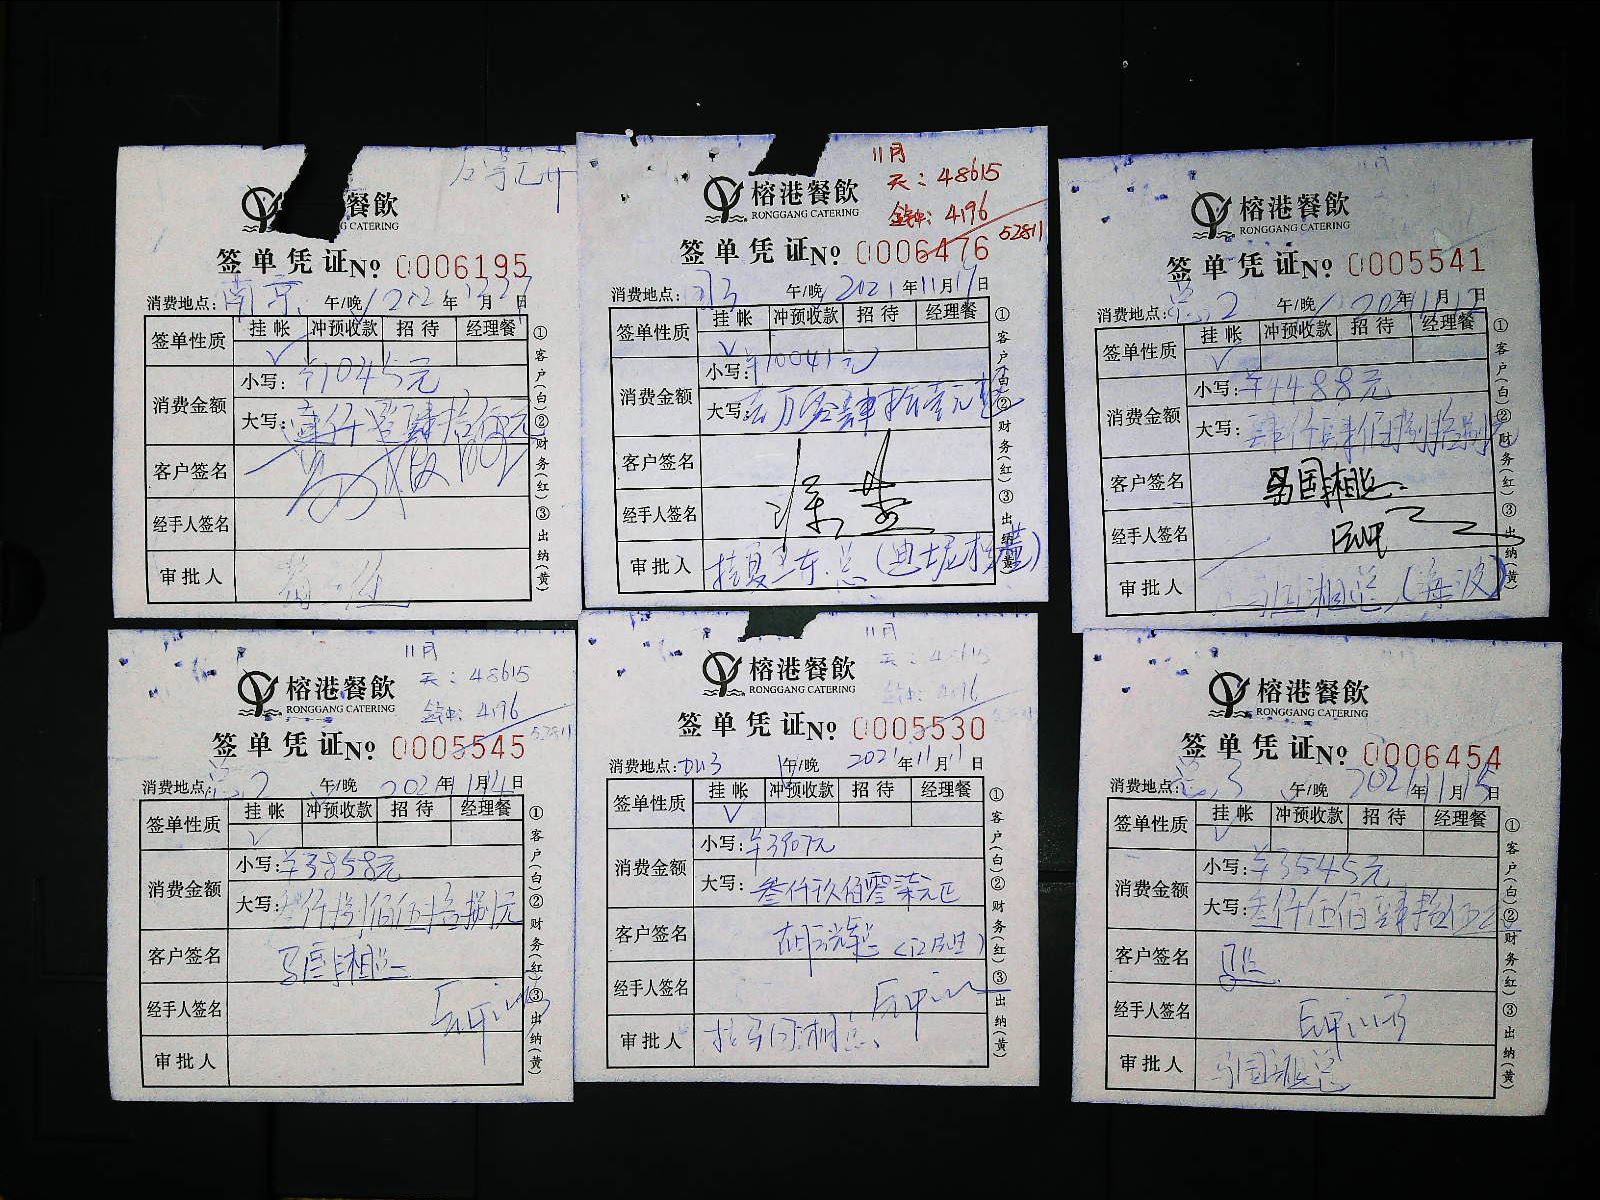 榕港餐飲
G CATERING
签单凭证№ 0006195
消费地点: 南京 午/晚 年 月 日
签单性质 挂帐 冲预收款 招待 经理餐
√
消费金额 小写: ¥1045元
大写:
客户签名
经手人签名
审批人
①客户(白)②财务(红)③出纳(黄)
11月
天: 48615
4196
52811
榕港餐飲
RONGGANG CATERING
签单凭证№ 0006476
消费地点: 午/晚 2021年11月17日
签单性质 挂帐 冲预收款 招待 经理餐
√
消费金额 小写: ¥10041元
大写: 壹万零肆拾壹元整
客户签名
经手人签名
审批人
①客户(白)②财务(红)③出纳(黄)
11月
榕港餐飲
RONGGANG CATERING
签单凭证№ 0005541
消费地点: 午/晚 2021年11月12日
签单性质 挂帐 冲预收款 招待 经理餐
√
消费金额 小写: ¥4488元
大写: 肆仟肆佰捌拾捌元
客户签名
经手人签名
审批人
①客户(白)②财务(红)③出纳(黄)
11月
天: 48615
4196
52811
榕港餐飲
RONGGANG CATERING
签单凭证№ 0005545
消费地点: 午/晚 2021年11月14日
签单性质 挂帐 冲预收款 招待 经理餐
√
消费金额 小写: ¥3858元
大写: 叁仟捌佰伍拾捌元
客户签名
经手人签名
审批人
①客户(白)②财务(红)③出纳(黄)
11月
天: 48615
4196
榕港餐飲
RONGGANG CATERING
签单凭证№ 0005530
消费地点: 午/晚 2021年11月11日
签单性质 挂帐 冲预收款 招待 经理餐
√
消费金额 小写: ¥3907元
大写: 叁仟玖佰零柒元正
客户签名
经手人签名
审批人
①客户(白)②财务(红)③出纳(黄)
榕港餐飲
RONGGANG CATERING
签单凭证№ 0006454
消费地点: 午/晚 2021年11月15日
签单性质 挂帐 冲预收款 招待 经理餐
√
消费金额 小写: ¥3545元
大写: 叁仟伍佰肆拾伍元
客户签名
经手人签名
审批人
①客户(白)②财务(红)③出纳(黄)